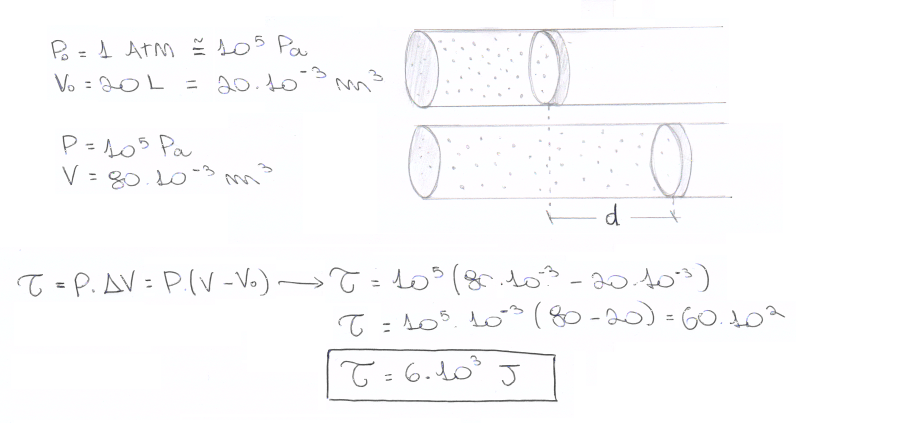 P₀ = 1 Atm ≅ 10⁵ Pa
V₀ = 20 L = 20.10⁻³ m³
P = 10⁵ Pa
V = 80.10⁻³ m³
d
τ = P.ΔV = P.(V-V₀) → τ = 10⁵ (80.10⁻³ - 20.10⁻³)
τ = 10⁵.10⁻³ (80-20) = 60.10²
τ = 6.10³ J